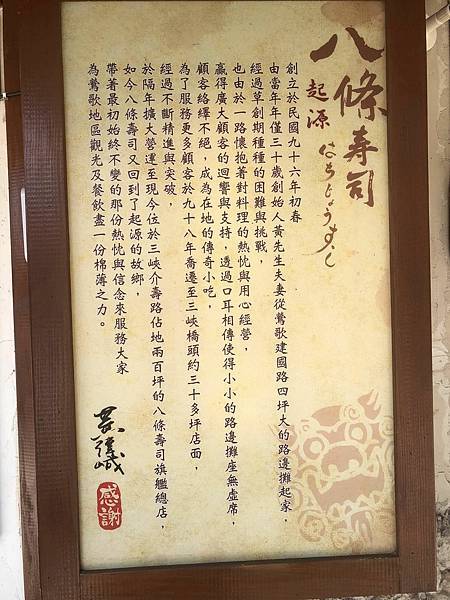 八條壽司
起源
はちじょうすし
創立於民國九十六年初春
由當年年僅三十歲創始人黃先生夫妻從鶯歌建國路四坪大的路邊攤起家，
經過草創期種種的困難與挑戰，
也由於一路懷抱著對料理的熱忱與用心經營，
贏得廣大顧客的迴響與支持，透過口耳相傳使得小小的路邊攤座無虛席，
顧客絡繹不絕，成為在地的傳奇小吃，
為了服務更多顧客於九十八年喬遷至三峽橋頭約三十多坪店面，
經過不斷精進與突破，
於隔年擴大營運至現今位於三峽介壽路佔地兩百坪的八條壽司旗艦總店，
如今八條壽司又回到了起源的故鄉，
帶著最初始終不變的那份熱忱與信念來服務大家
為鶯歌地區觀光及餐飲盡一份棉薄之力。
感謝